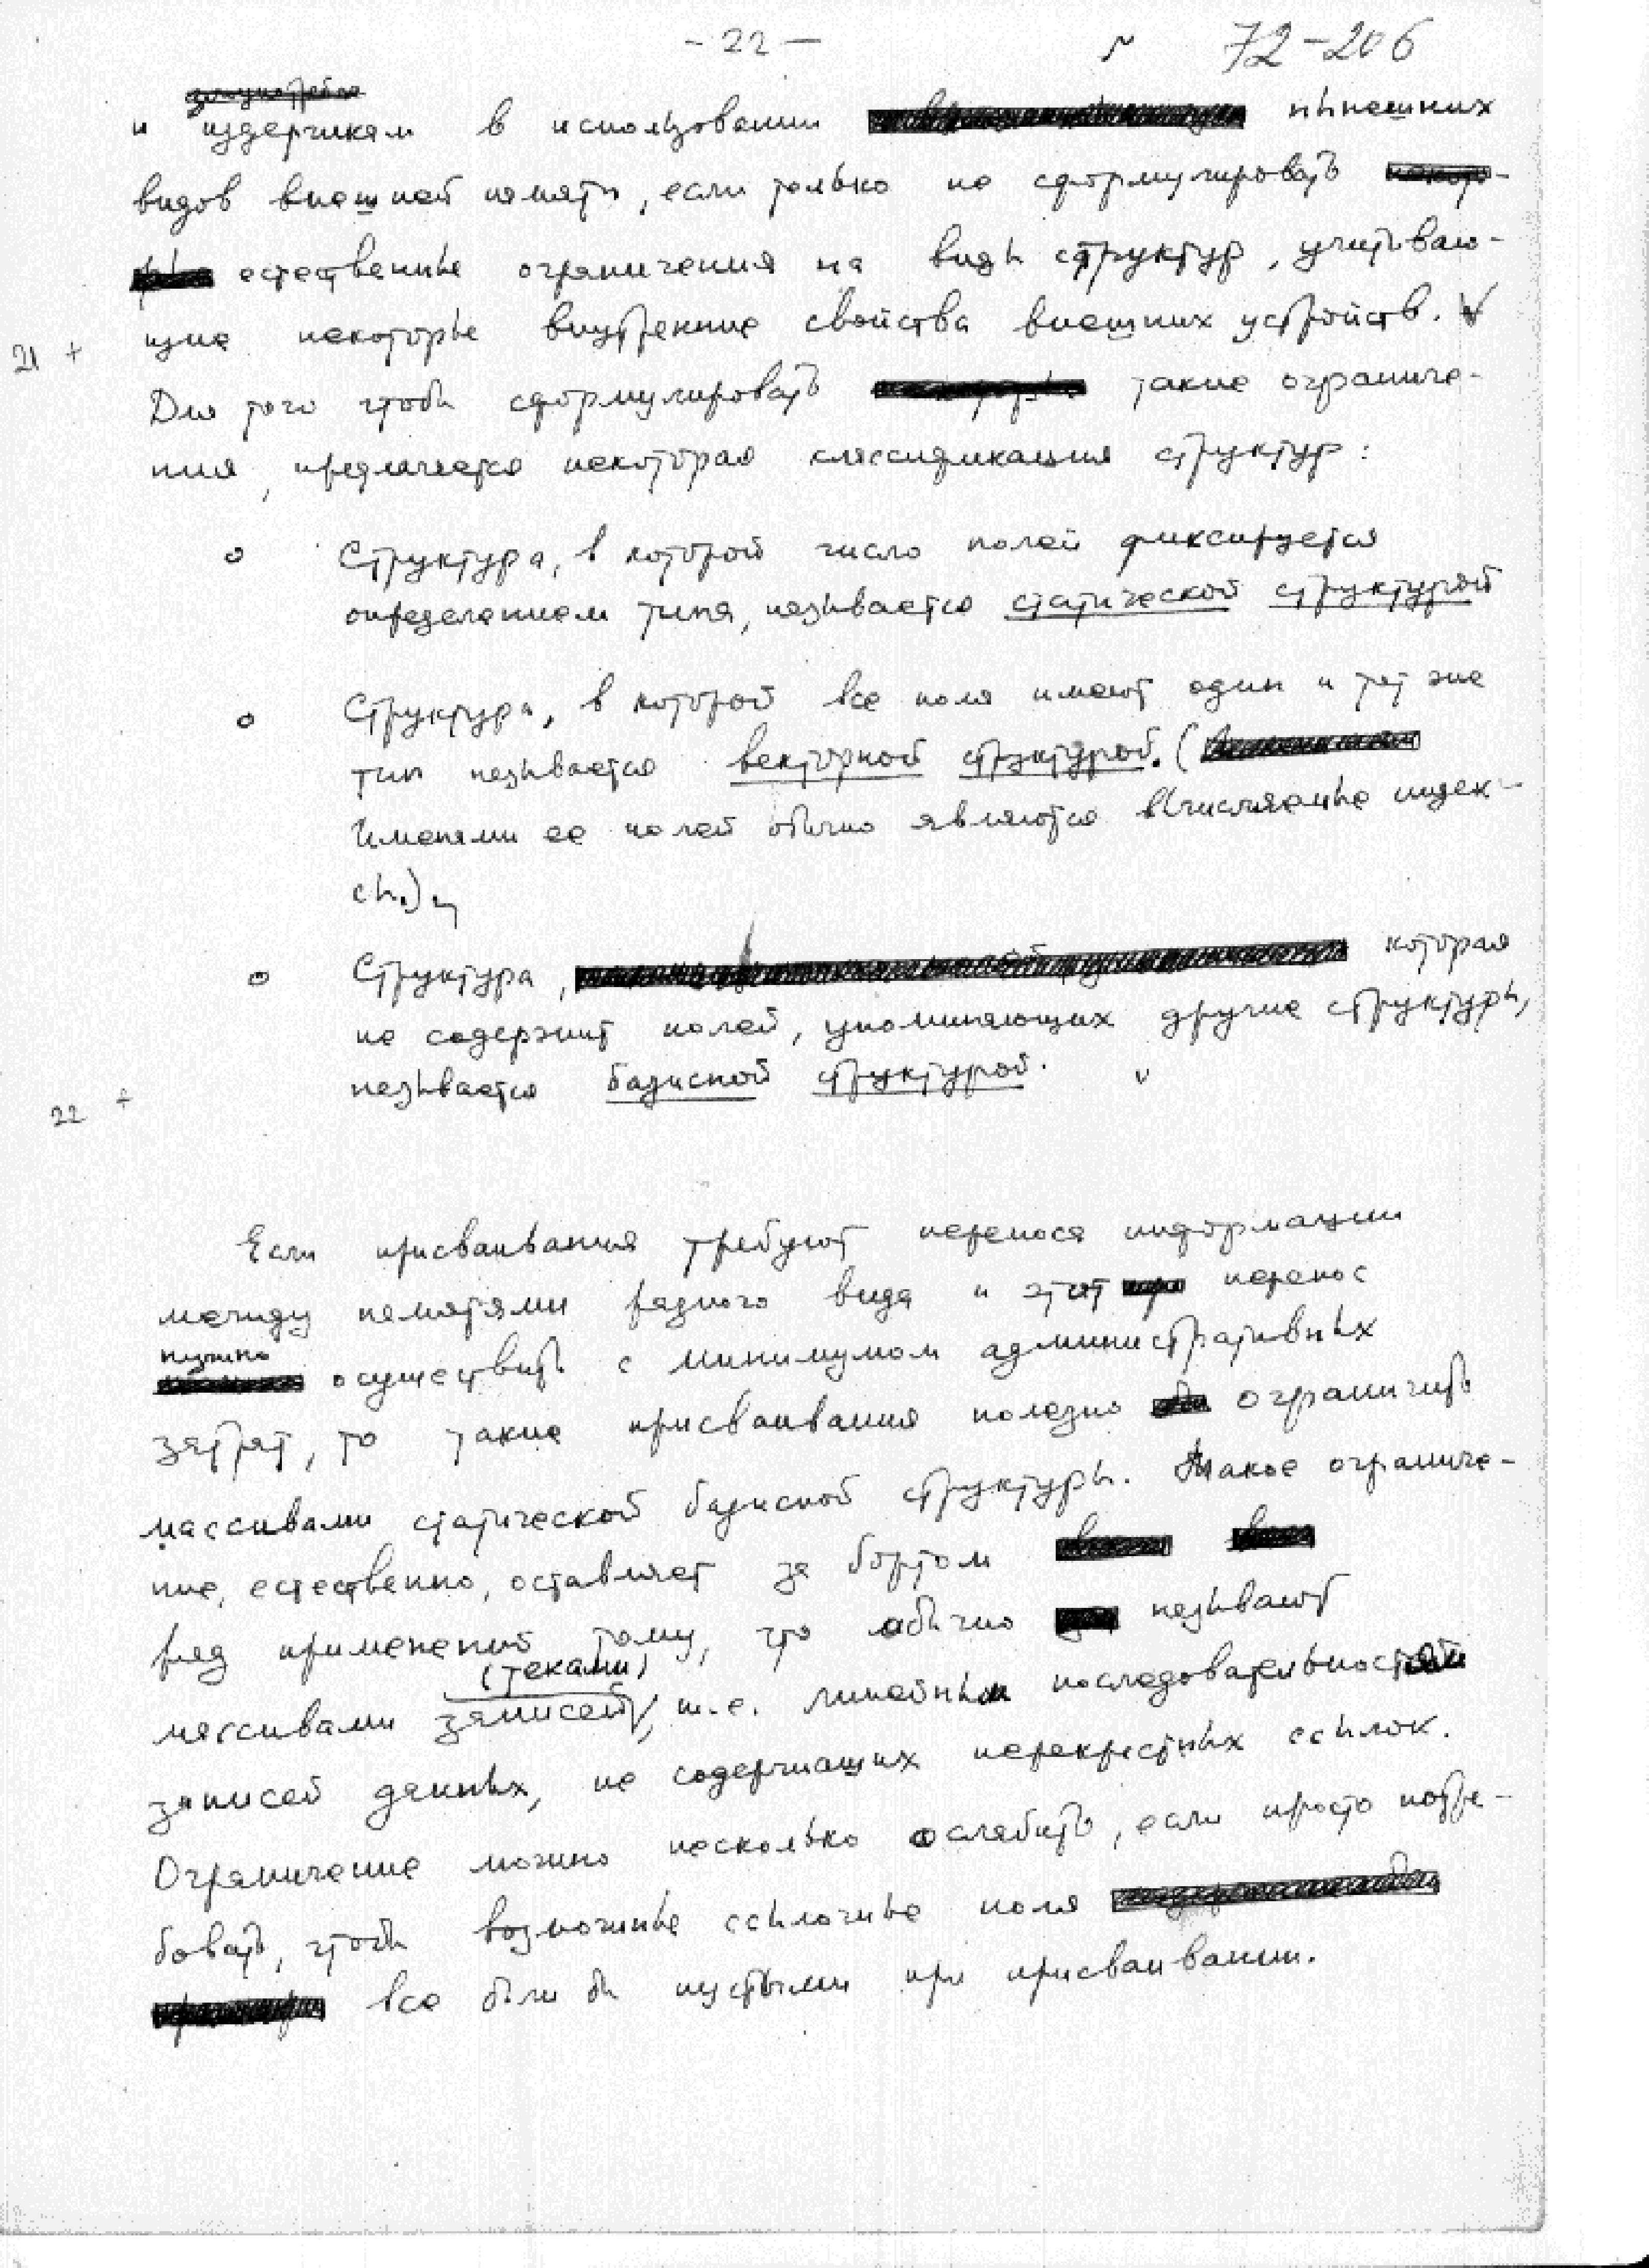 - 22 -
72-206
и издержкам в использовании нынешних
видов внешней памяти, если только не сформулировать
естественные ограничения на виды структур, учитываю-
щие некоторые внутренние свойства внешних устройств.
21 +
Для того чтобы сформулировать такие ограниче-
ния, предлагается некоторая классификация структур:
o Структура, в которой число полей фиксируется
определением типа, называется статической структурой
o Структура, в которой все поля имеют один и тот же
тип называется векторной структурой. (
Именами ее полей обычно являются вычисляемые индек-
сы.)
o Структура, которая
не содержит полей, упоминающих другие структуры,
называется базисной структурой.
22 +
Если присваивания требуют переноса информации
между памятями разного вида и этот перенос
нужно
осуществить с минимумом административных
затрат, то такие присваивания полезно ограничить
массивами статической базисной структуры. Такое ограниче-
ние, естественно, оставляет за бортом
ряд применений тому, что обычно называют
(теками)
массивами записей, т.е. линейным последовательностям
записей данных, не содержащих перекрестных ссылок.
Ограничение можно несколько ослабить, если просто потре-
бовать, чтобы возможные ссылочные поля
все были бы пустыми при присваивании.